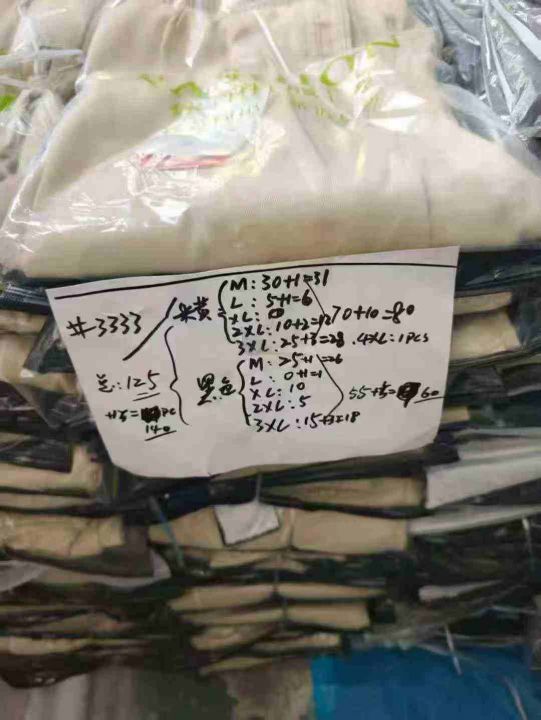 #3333
米黄
M: 30+1=31
L: 5+1=6
XL: 0
2XL: 10+2=12
3XL: 25+3=28 . 4XL: 1PCS
70+10=80
总: 125
140
黑色
M: 25+1=26
L: 0+1=1
XL: 10
2XL: 5
3XL: 15+3=18
55+5= 60